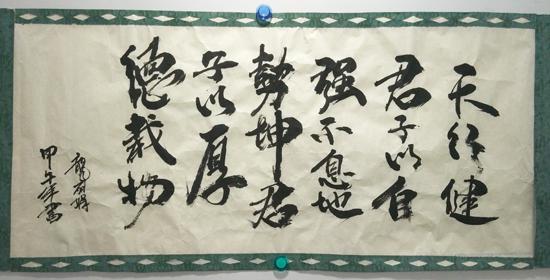 天行健
君子以自
强不息地
勢坤君
子以厚
德載物
龍
甲午年書